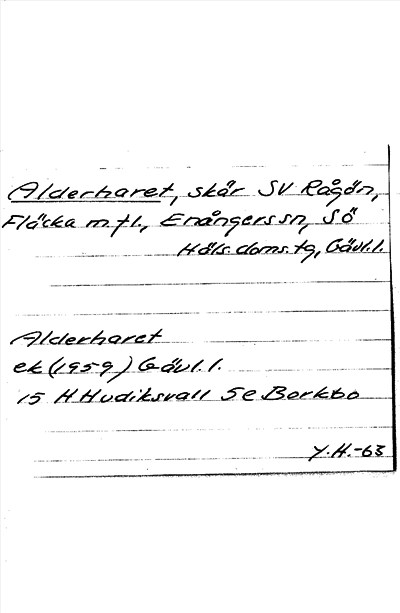 Alderharet, skär SV Rågön,
Fläcka mtl., Enångers sn, SÖ
Häls. doms.tg, Gävl.l.
Alderharet
ek (1959) Gävl.l.
15 H Hudiksvall 5e Borkbo
Y.H.-63